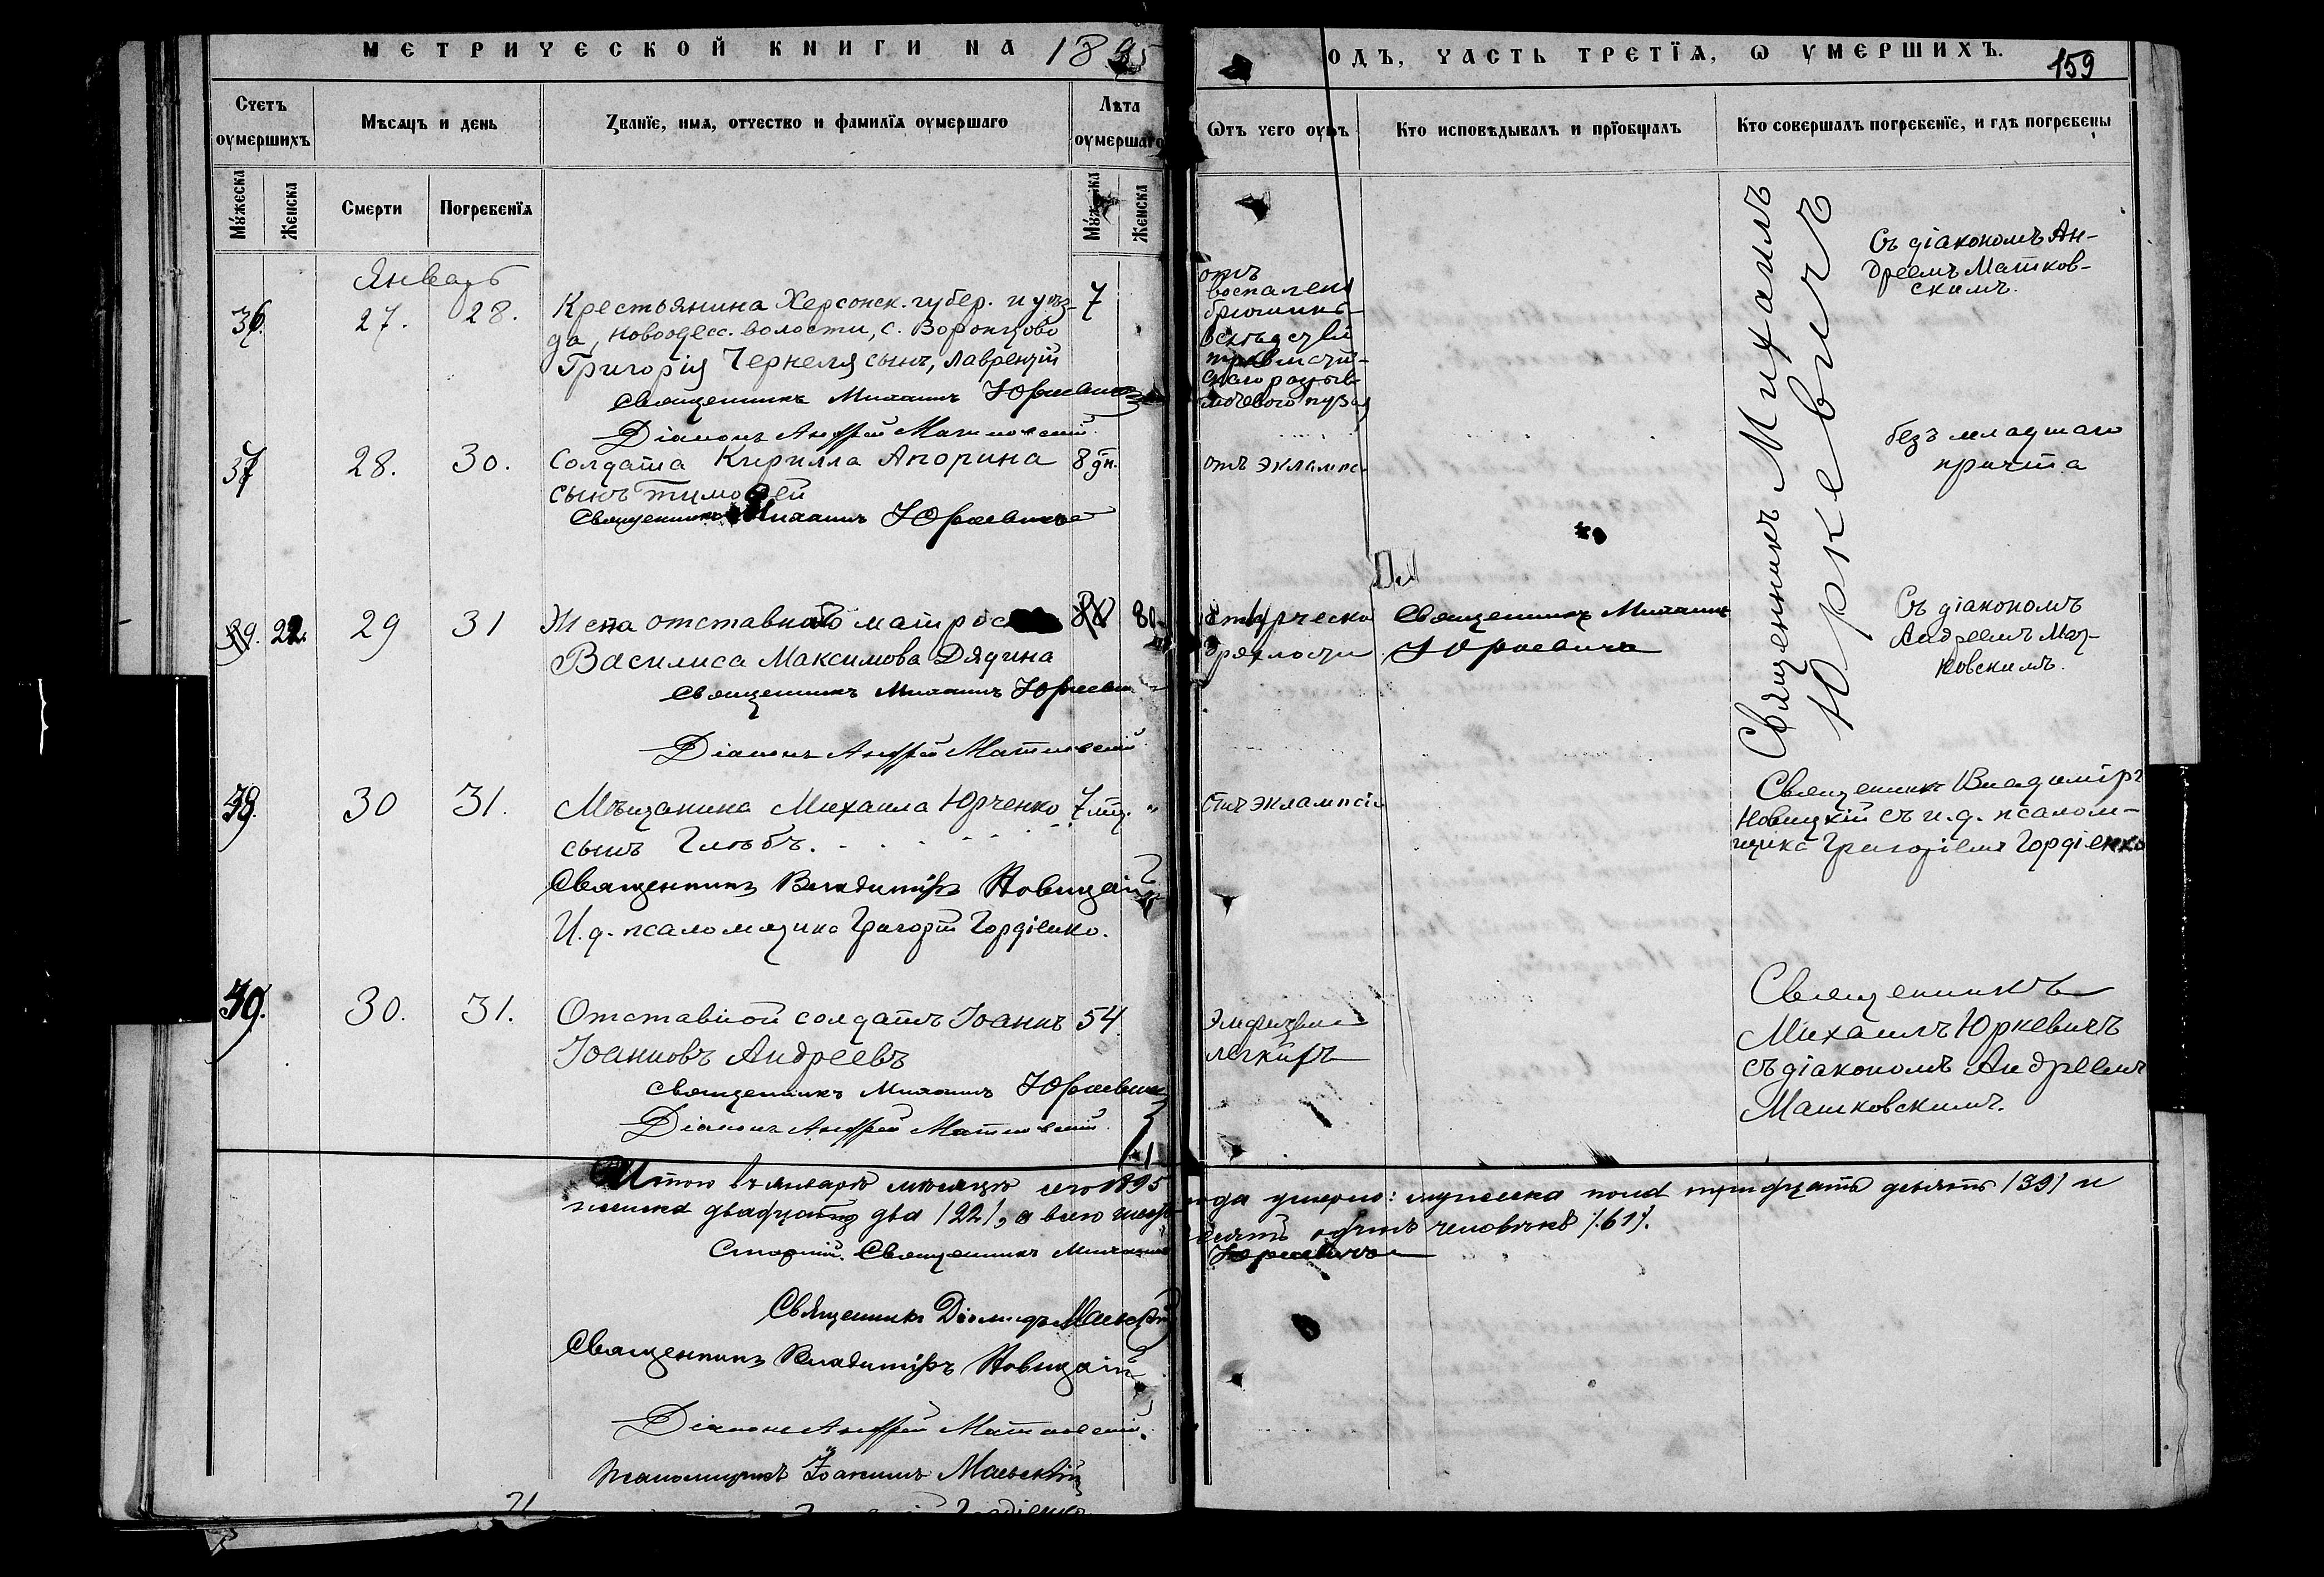 МЕТРИЧЕСКОЙ КНИГИ НА 1895
ОДЪ, ЧАСТЬ ТРЕТІѦ, Ѡ УМЕРШИХЪ.
159
Счетъ оумершихъ
Мѣсяцъ и день
Званїе, имѧ, отчество и фамилїѧ оумершаго
Лѣта оумершаго
Ѿтъ чего оумъ
Кто исповѣдывалъ и прїобщалъ
Кто совершалъ погребенїе, и гдѣ погребены
Мужеска
Женска
Смерти
Погребенїѧ
Женска
Январь
36. 27. 28. Крестьянина Херсонск. губер. и уѣз- 7
да, новоодесс. волости, с. Воронцово
Григорія Чернеля сынъ, Лаврентій
Священникъ Михаилъ Юркевичъ
Діаконъ Андрей Матковскій
отъ
воспален
брюшины
вслѣдствіи
травмати-
скаго разрыв
мочеваго пузыр
Священникъ Михаилъ
Юркевичъ
Съ діакономъ Ан-
дреемъ Матков-
скимъ.
37 28. 30. Солдата Кирилла Апорина 8 дн.
сынъ Тимофей
Священникъ Михаилъ Юркевичъ
отъ эклампс.
безъ младшаго
причта
22. 29 31 Жена отставного матроса 80
Василиса Максимова Дядина
Священникъ Михаилъ Юркевичъ
Діаконъ Андрей Матковскій
Старческо
дряхлости
Священникъ Михаилъ
Юркевичъ
Съ діакономъ
Андреемъ Мат-
ковскимъ.
38. 30 31. Мѣщанина Михаила Юрченко 7 мѣ. "
сынъ Глѣбъ.
Священникъ Владиміръ Новицкій
И. д. псаломщика Григорій Гордіенко.
Отъ эклампсіи
Священникъ Владиміръ
Новицкій съ и. д. псалом-
щика Григоріемъ Гордіенко
39. 30. 31. Отставной солдатъ Іоаннъ 54
Іоанновъ Андреевъ
Священникъ Михаилъ Юркевичъ
Діаконъ Андрей Матковскій.
Эмфизема
легкихъ
Священникъ
Михаилъ Юркевичъ
съ діакономъ Андреемъ
Матковскимъ.
Итого въ январѣ мѣсяцѣ сего 1895 года умерло: мужеска пола тридцать девять /39/ и
женска двадцать два /22/, а всего шестьдесятъ одинъ человѣкъ /61/.
Старшій Священникъ Михаилъ Юркевичъ
Священникъ Діомидъ Маевскій
Священникъ Владиміръ Новицкій
Діаконъ Андрей Матковскій.
Псаломщикъ Іоаннъ Маевскій